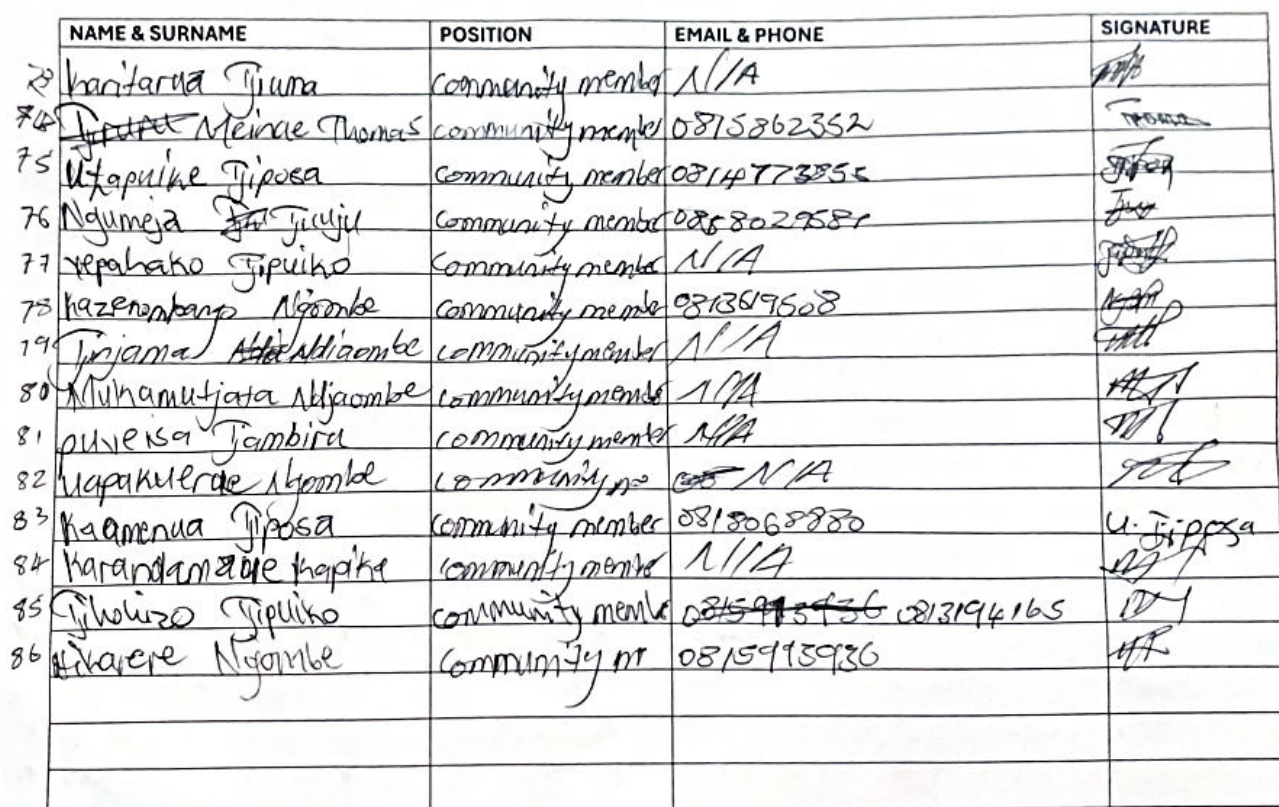 NAME & SURNAME POSITION EMAIL & PHONE SIGNATURE
73 Karitarua Tjiuma community member N/A
74 Meinae Thomas community member 0815862352
75 Utapuike Tjiposa community member 0814773855
76 Ngumeja Tjiuju community member
77 Yepahako Tjipuiko community member N/A
78 Kazenombango Ngombe community member 0813619508
79 Tjinjama Ndiaombe community member N/A
80 Mukamutjata Ndjaombe community member N/A
81 ouveisa Tjambiru community member N/A
82 Uapakuerae Ngombe community m N/A
83 Kaamenua Tjiposa community member 0818068880 U. Tjiposa
84 Kapika community member N/A
85 Tjikoizo Tjipuiko community membe 0815993936 0813194165
86 Hikarere Ngombe community m 0815993936